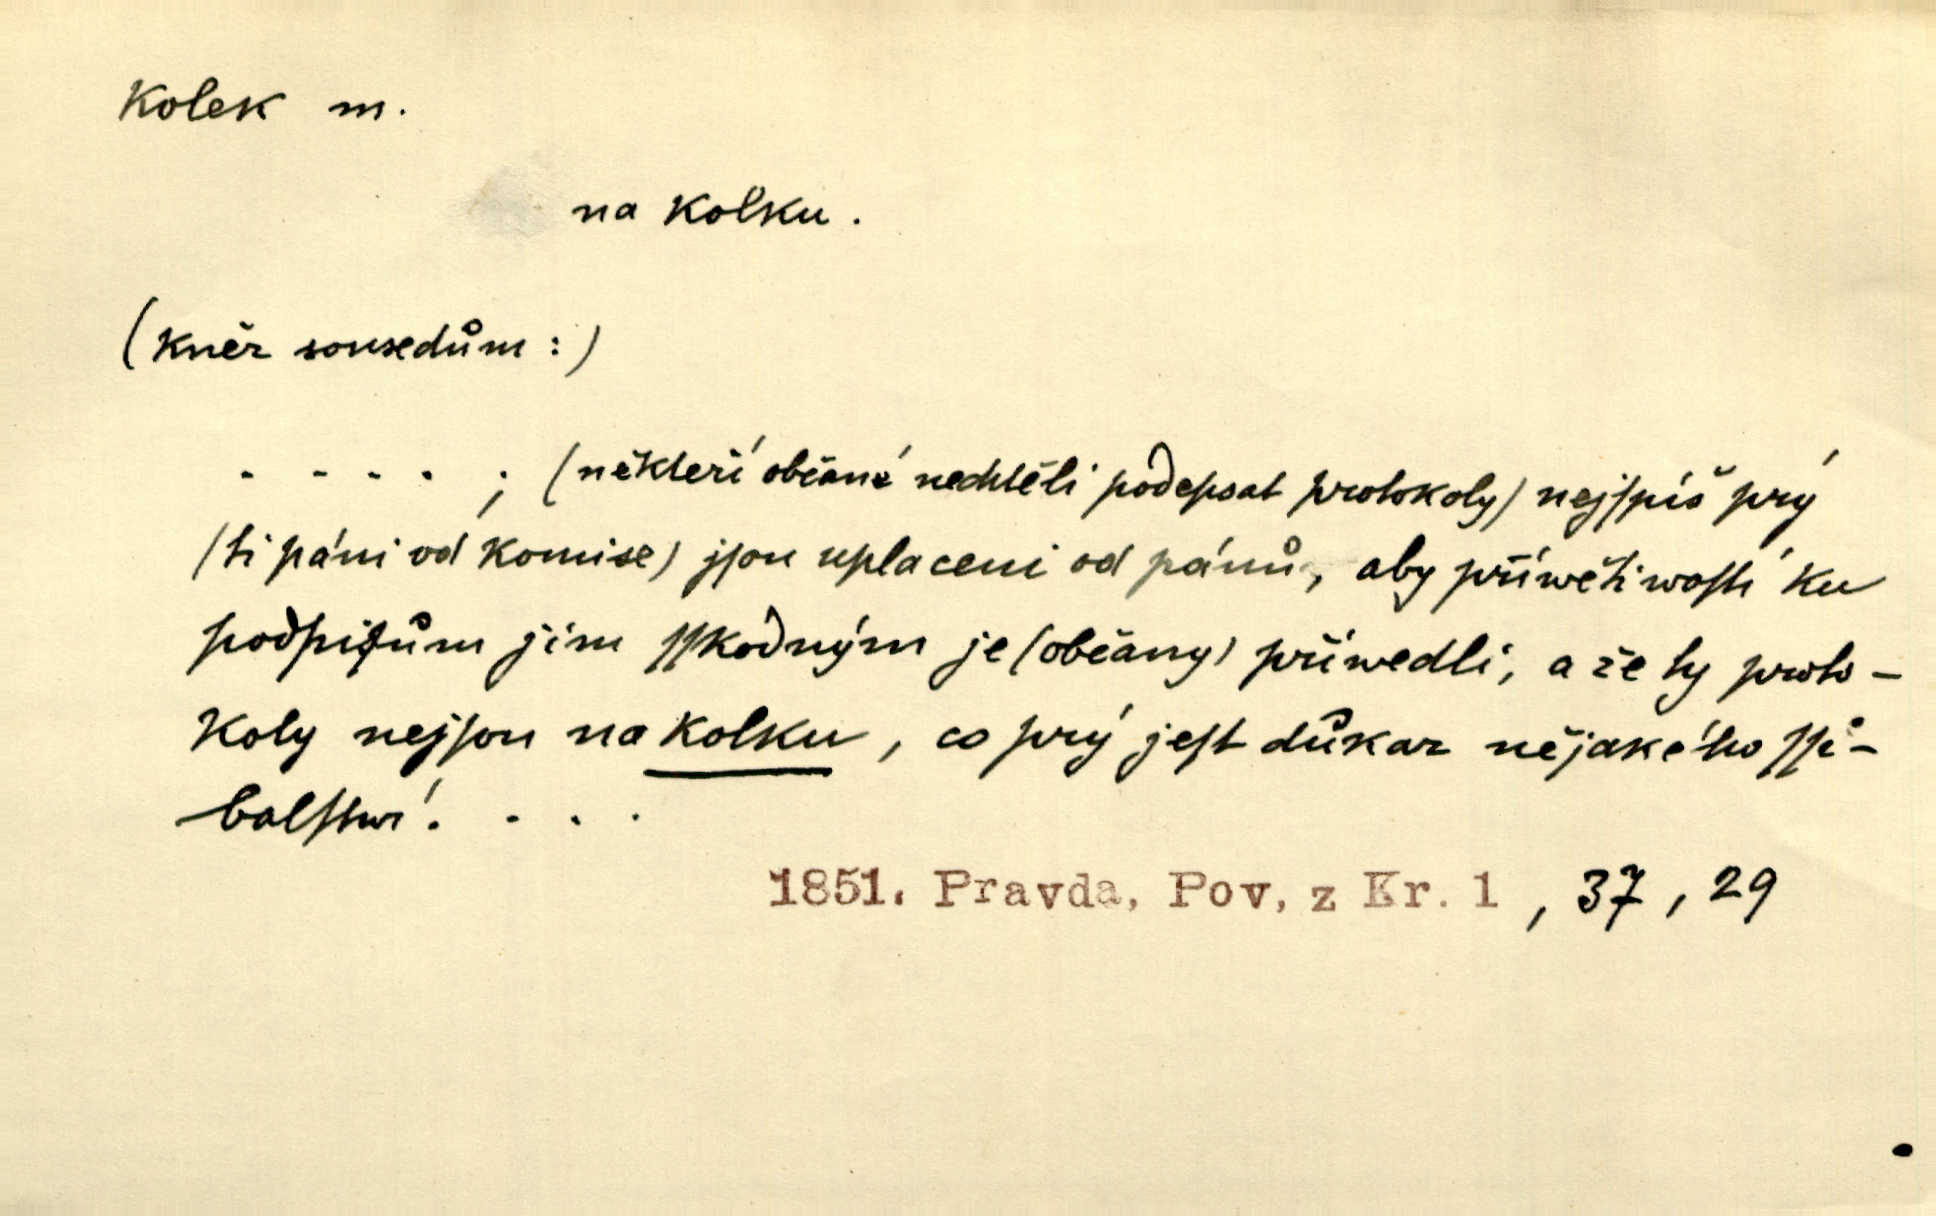 Kolek m.
na kolku.
(kněz sousedům:)
. . . . ; (někteří občané nechtěli podepsat protokoly) nejſpíš prý
(ti páni od komise) jſou uplaceni od pánů, aby přívětiwoſtí ku
podpiſům jim ſſkodným je (občany) přiwedli, a že ty proto-
koly nejſou na kolku, co prý jeſt důkaz nějakého ſſi-
balſtwí. . . .
1851. Pravda, Pov. z Kr. 1, 37, 29